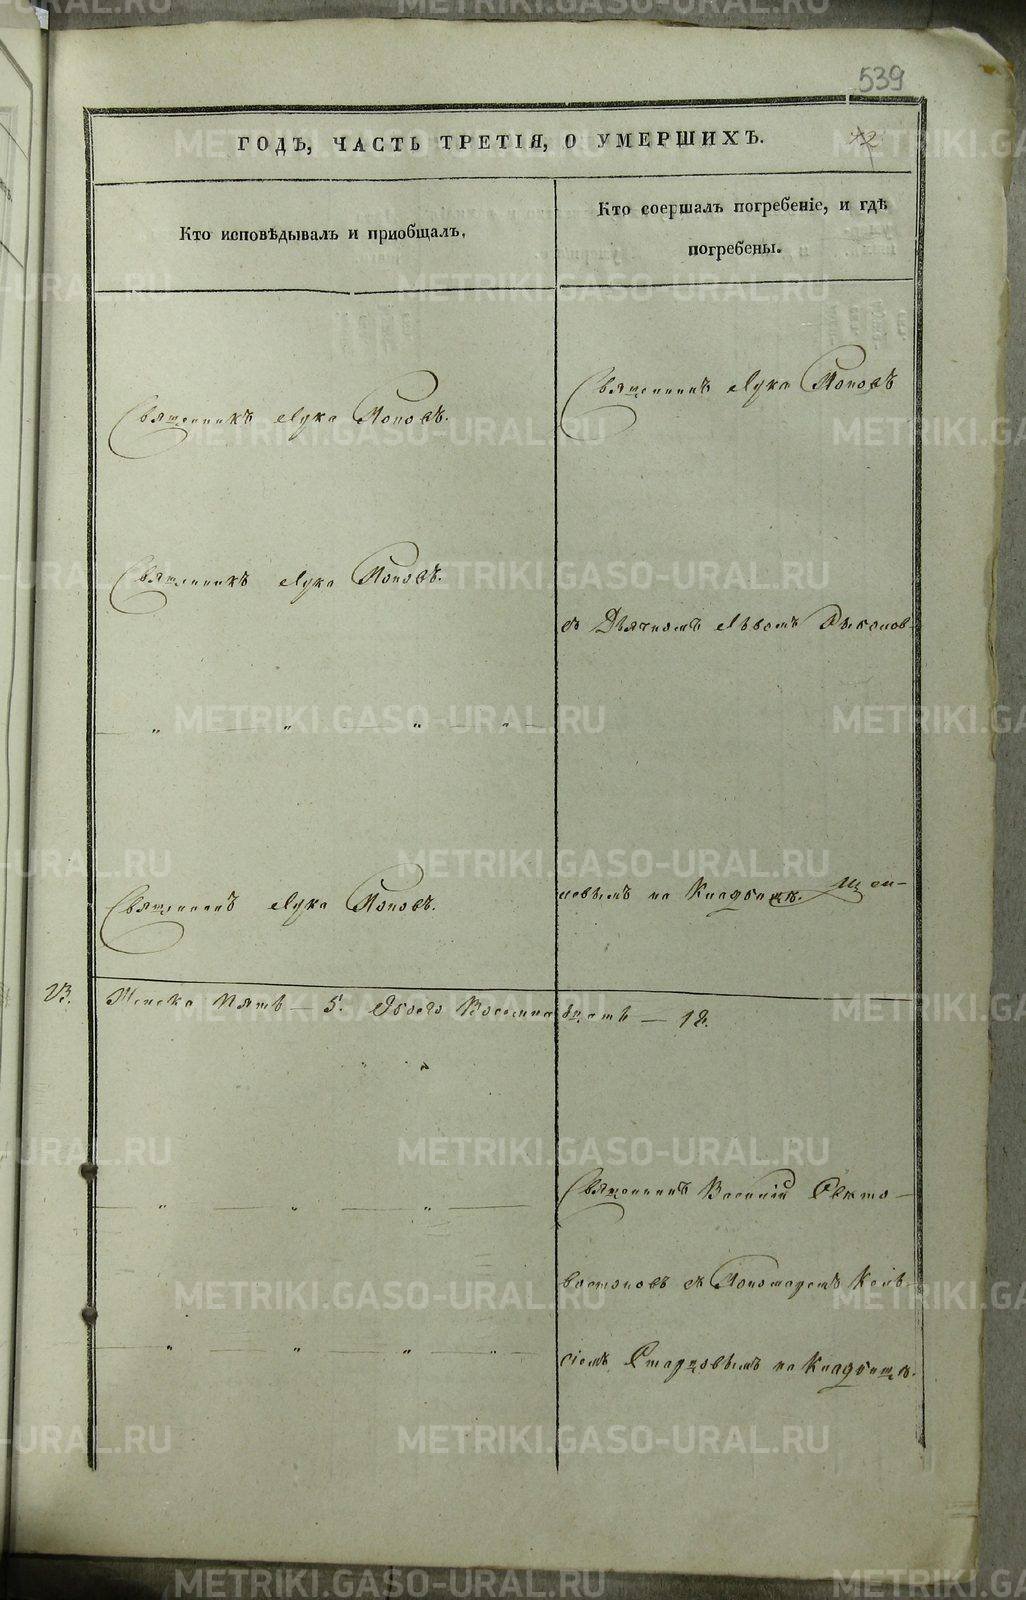 539
ГОДЪ, ЧАСТЬ ТРЕТІЯ, О УМЕРШИХЪ.
Кто исповѣдывалъ и приобщалъ.
Кто соершалъ погребеніе, и гдѣ
погребены.
Священникъ Лука Поповъ
Священникъ Лука Поповъ.
Священникъ Лука Поповъ.
съ Дьячкомъ Львомъ
Священникъ Лука Поповъ.
на Кладбищѣ.
13. Женска Пять — 5. Обоего Восемнадцать — 18.
Священникъ Василій Секто-
востоковъ съ Пономаремъ
Старцовымъ на Кладбищѣ.
METRIKI.GASO-URAL.RU